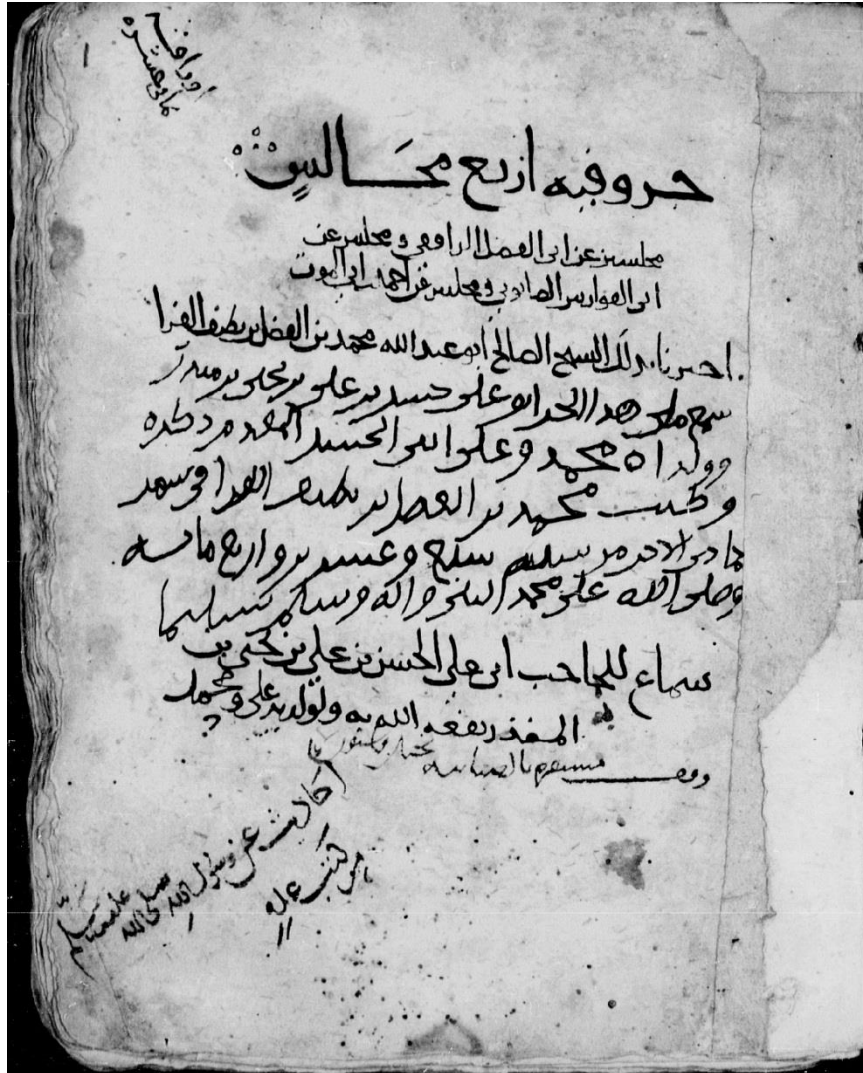 اوراقه
ثمانى عشره
جزو فيه اربع مجالس
مجلسين عن ابى الفضل الرافعى ومجلس عن
ابى الفوارس الصابونى ومجلس عن احمد بن ابى الموت
اخبرنا بذلك الشيخ الصالح ابو عبد الله محمد بن الفضل بن نظيف الفرا
سمع منى هذا الجزو ابو على حسين بن على بن يحيى بن
وولداه محمد وعلى ابنى الحسين
وكتب محمد بن الفضل بن نظيف الفرا فى شهر
جمادى الاخره من سنة سبع وعشرين واربع مائه
وصلى الله على محمد النبى واله وسلم تسليما
سماع للحاجب ابى على الحسن بن على بن يحيى بن
المنذر نفعه الله به ولولديه على ومحمد
وقف مستقره بالضيائيه
احاديث عن رسول الله صلى الله عليه وسلم
من كتب